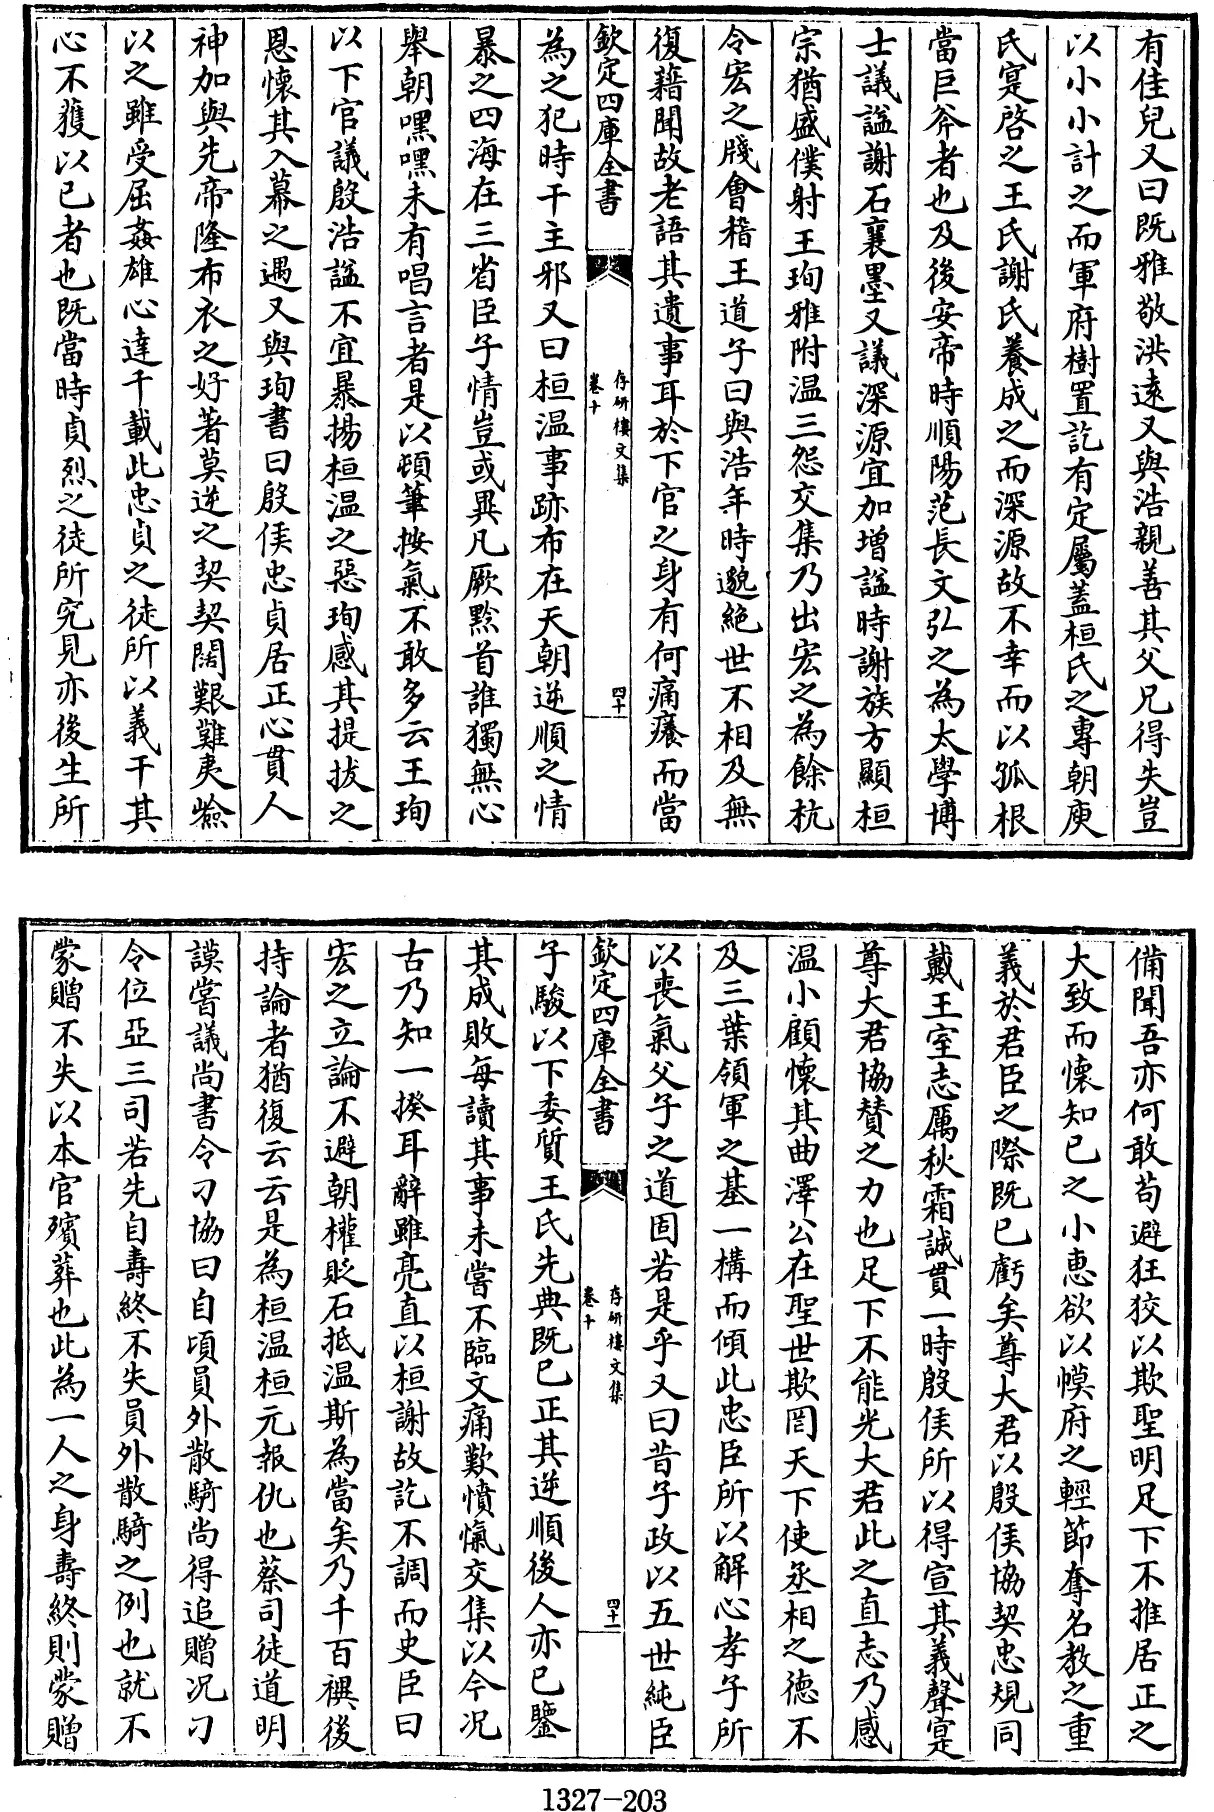 有佳兒又曰既雅敬洪遠又與浩親善其父兄得失豈
以小小計之而軍府樹置訖有定屬蓋桓氏之專朝庾
氏寔啓之王氏謝氏養成之而深源故不幸而以孤根
當巨斧者也及後安帝時順陽范長文弘之為太學博
士議諡謝石襄墨又議深源宜加增諡時謝族方顯桓
宗猶盛僕射王珣雅附温三怨交集乃出宏之為餘杭
令宏之牋會稽王道子曰與浩年時邈絶世不相及無
復藉聞故老語其遺事耳於下官之身有何痛癢而當
欽定四庫全書
存研樓文集
卷十
四十
為之犯時干主邪又曰桓温事跡布在天朝逆順之情
暴之四海在三省臣子情豈或異凡厥黔首誰獨無心
舉朝嘿嘿未有唱言者是以頓筆按氣不敢多云王珣
以下官議殷浩諡不宜暴揚桓温之惡珣感其提拔之
恩懷其入幕之遇又與珣書曰殷侯忠貞居正心貫人
神加與先帝隆布衣之好著莫逆之契契闊艱難夷嶮
以之雖受屈姦雄心達千載此忠貞之徒所以義干其
心不獲以已者也既當時貞烈之徒所究見亦後生所
備聞吾亦何敢苟避狂狡以欺聖明足下不推居正之
大致而懷知己之小惠欲以幙府之輕節奪名教之重
義於君臣之際既已虧矣尊大君以殷侯協契忠規同
戴王室志厲秋霜誠貫一時殷侯所以得宣其義聲寔
尊大君協贊之力也足下不能光大君此之直志乃感
温小顧懷其曲澤公在聖世欺罔天下使丞相之德不
及三葉領軍之基一構而傾此忠臣所以解心孝子所
以喪氣父子之道固若是乎又曰昔子政以五世純臣
欽定四庫全書
存研樓文集
卷十
四十一
子駿以下委質王氏先典既已正其逆順後人亦已鑒
其成敗每讀其事未嘗不臨文痛歎憤愾交集以今况
古乃知一揆耳辭雖亮直以桓謝故訖不調而史臣曰
宏之立論不避朝權貶石抵温斯為當矣乃千百禩後
持論者猶復云云是為桓温桓元報仇也蔡司徒道明
謨嘗議尚書令刁協曰自頃員外散騎尚得追贈况刁
令位亞三司若先自壽終不失員外散騎之例也就不
蒙贈不失以本官殯葬也此為一人之身壽終則蒙贈
1327-203